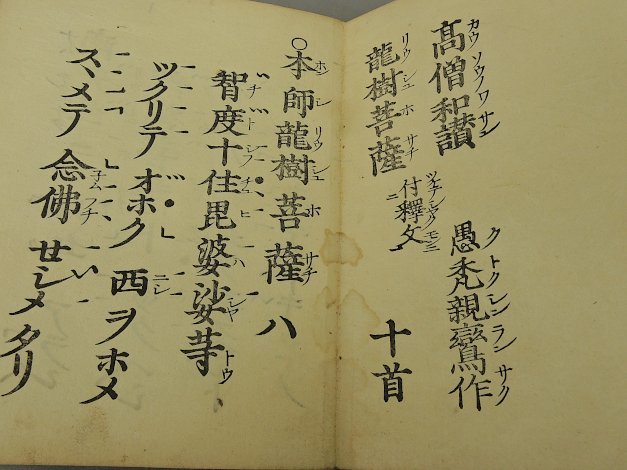 高僧和讃
愚禿親鸞作
龍樹菩薩 付釋文 十首
本師龍樹菩薩ハ
智度十住毘婆娑䓁
ツクリテオホク西ヲホメ
スヽメテ念佛セシメタリ